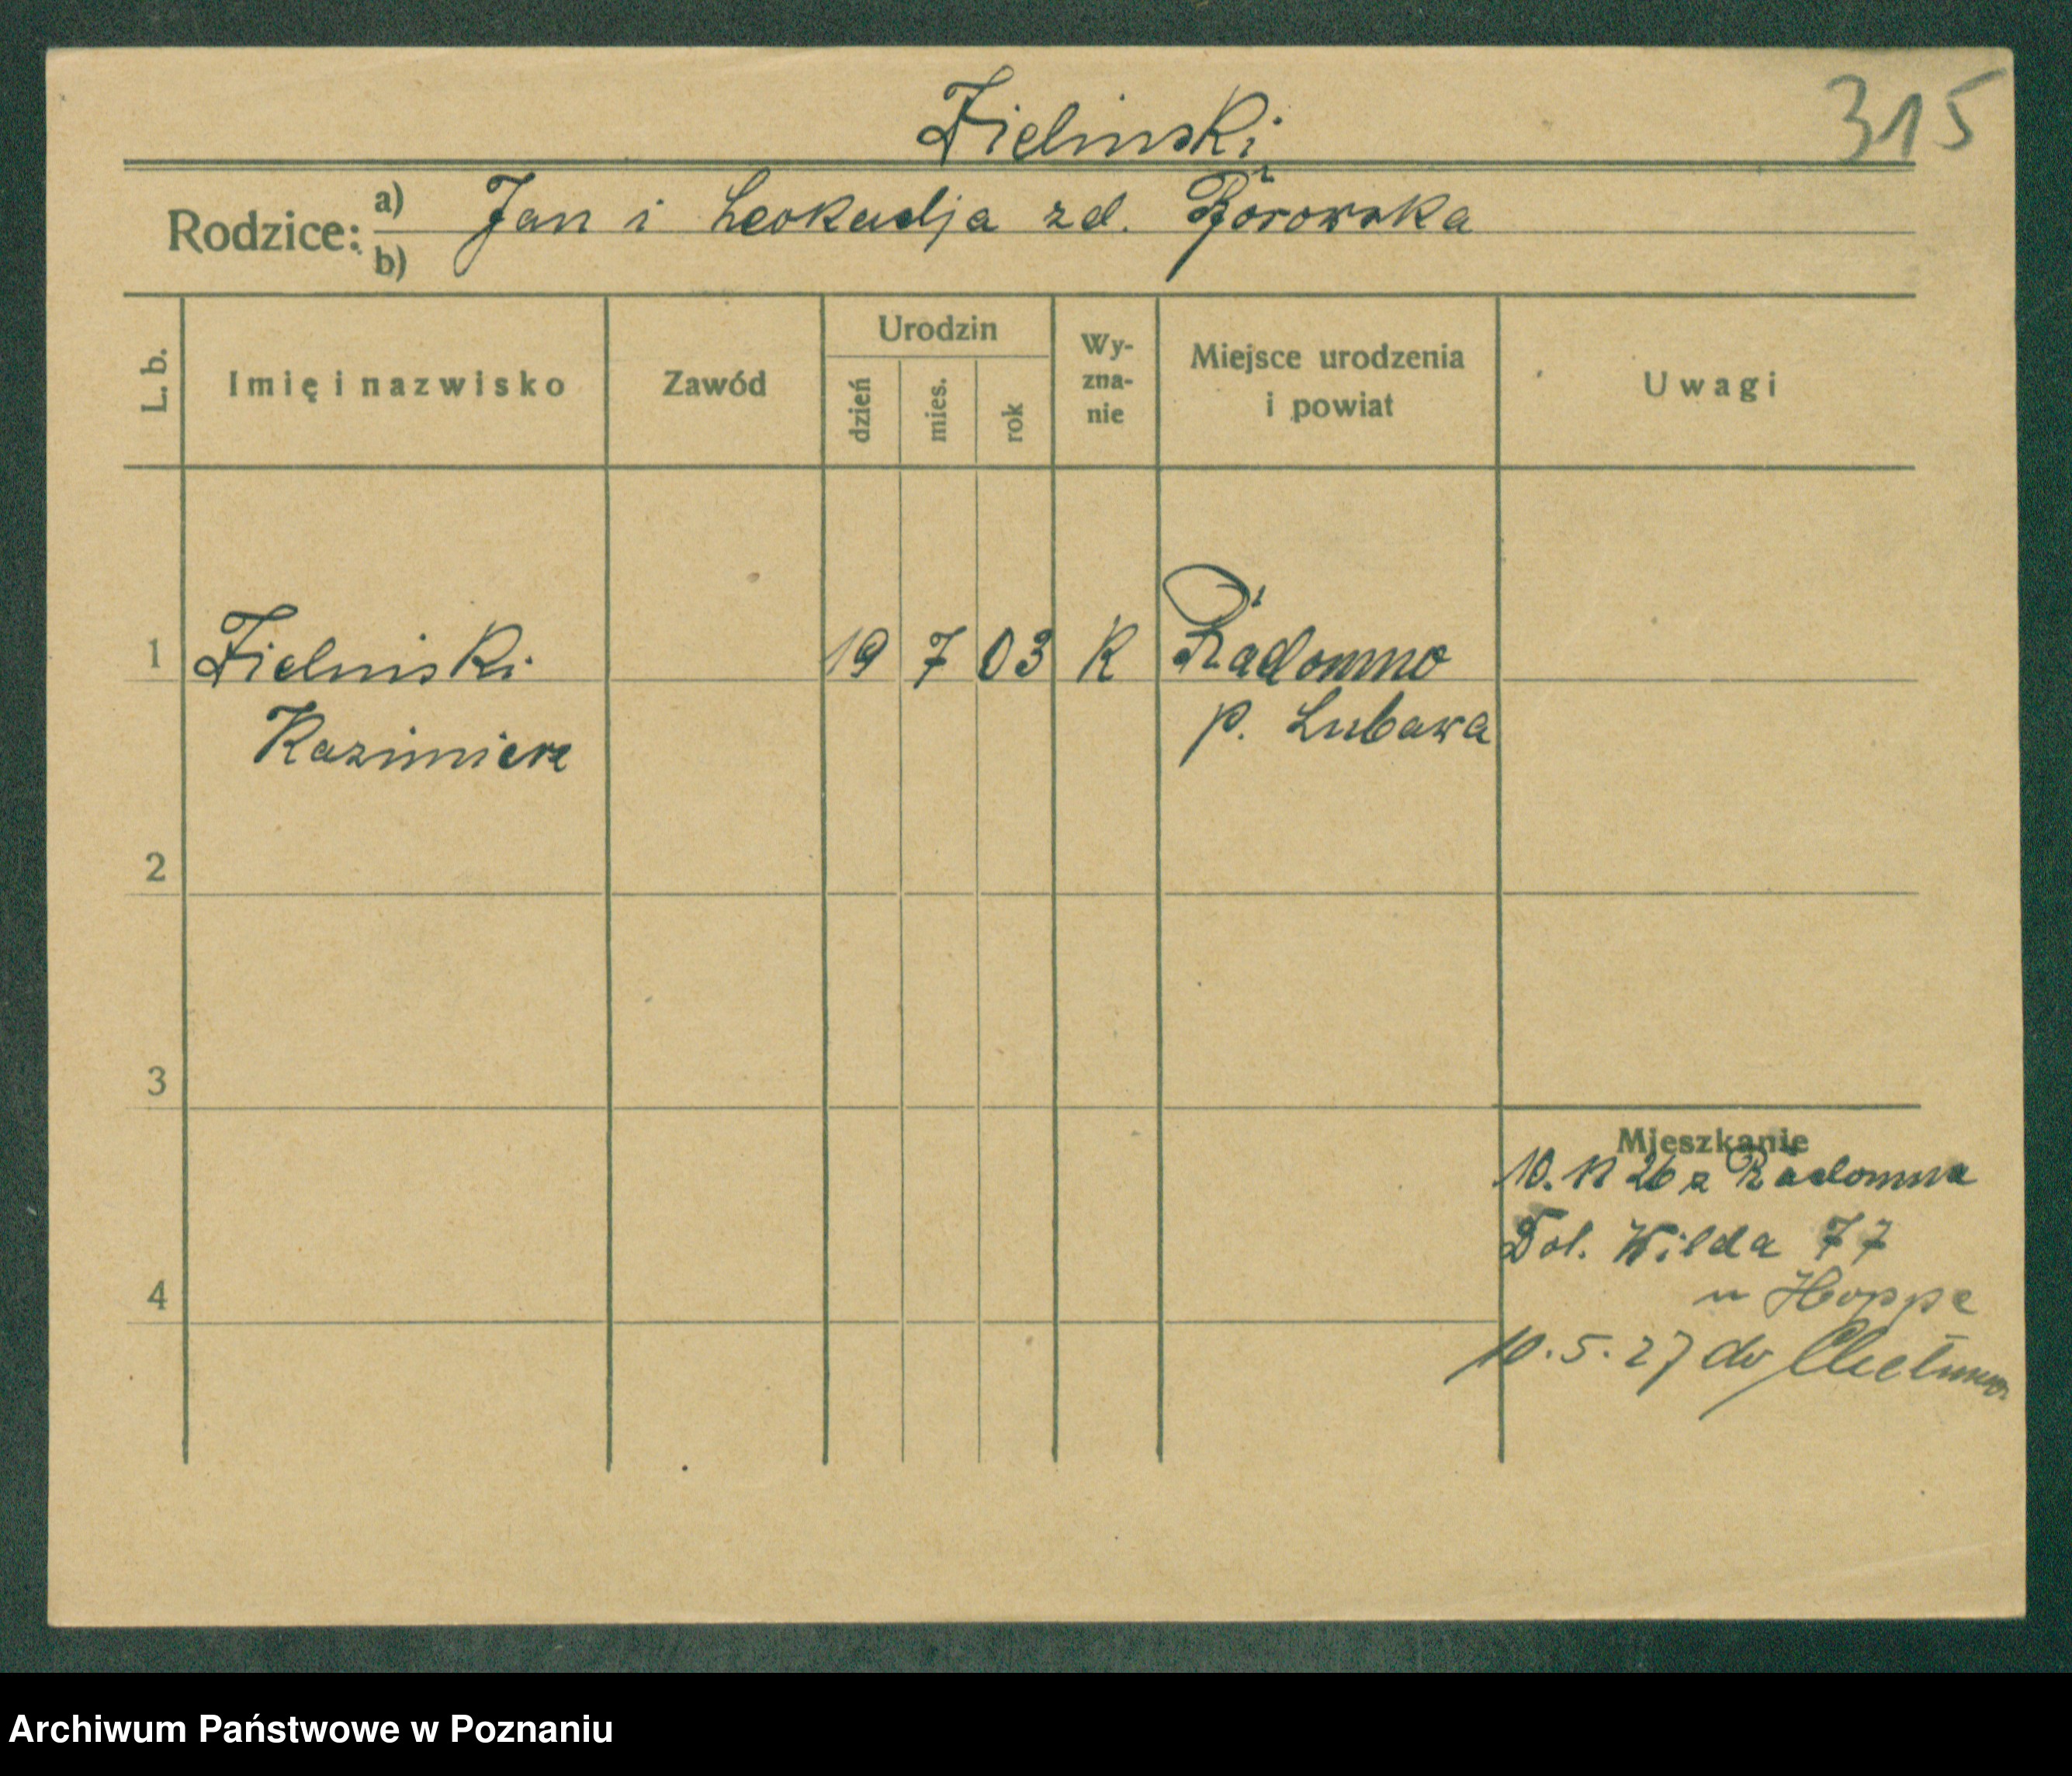 Zielinski
315
Rodzice: a) Jan i Leokadja zd.
b)
L. b.
Imię i nazwisko
Zawód
Urodzin
dzień
mies.
rok
Wy-
zna-
nie
Miejsce urodzenia
i powiat
Uwagi
1 Zielinski 19 7 03 K Radomno
Kazimierz p. Lubawa
2
3
Mieszkanie
10. 11 26 z Radomna
Dol. Wilda 77
u Hoppe
4
10.5.27 do
Archiwum Państwowe w Poznaniu